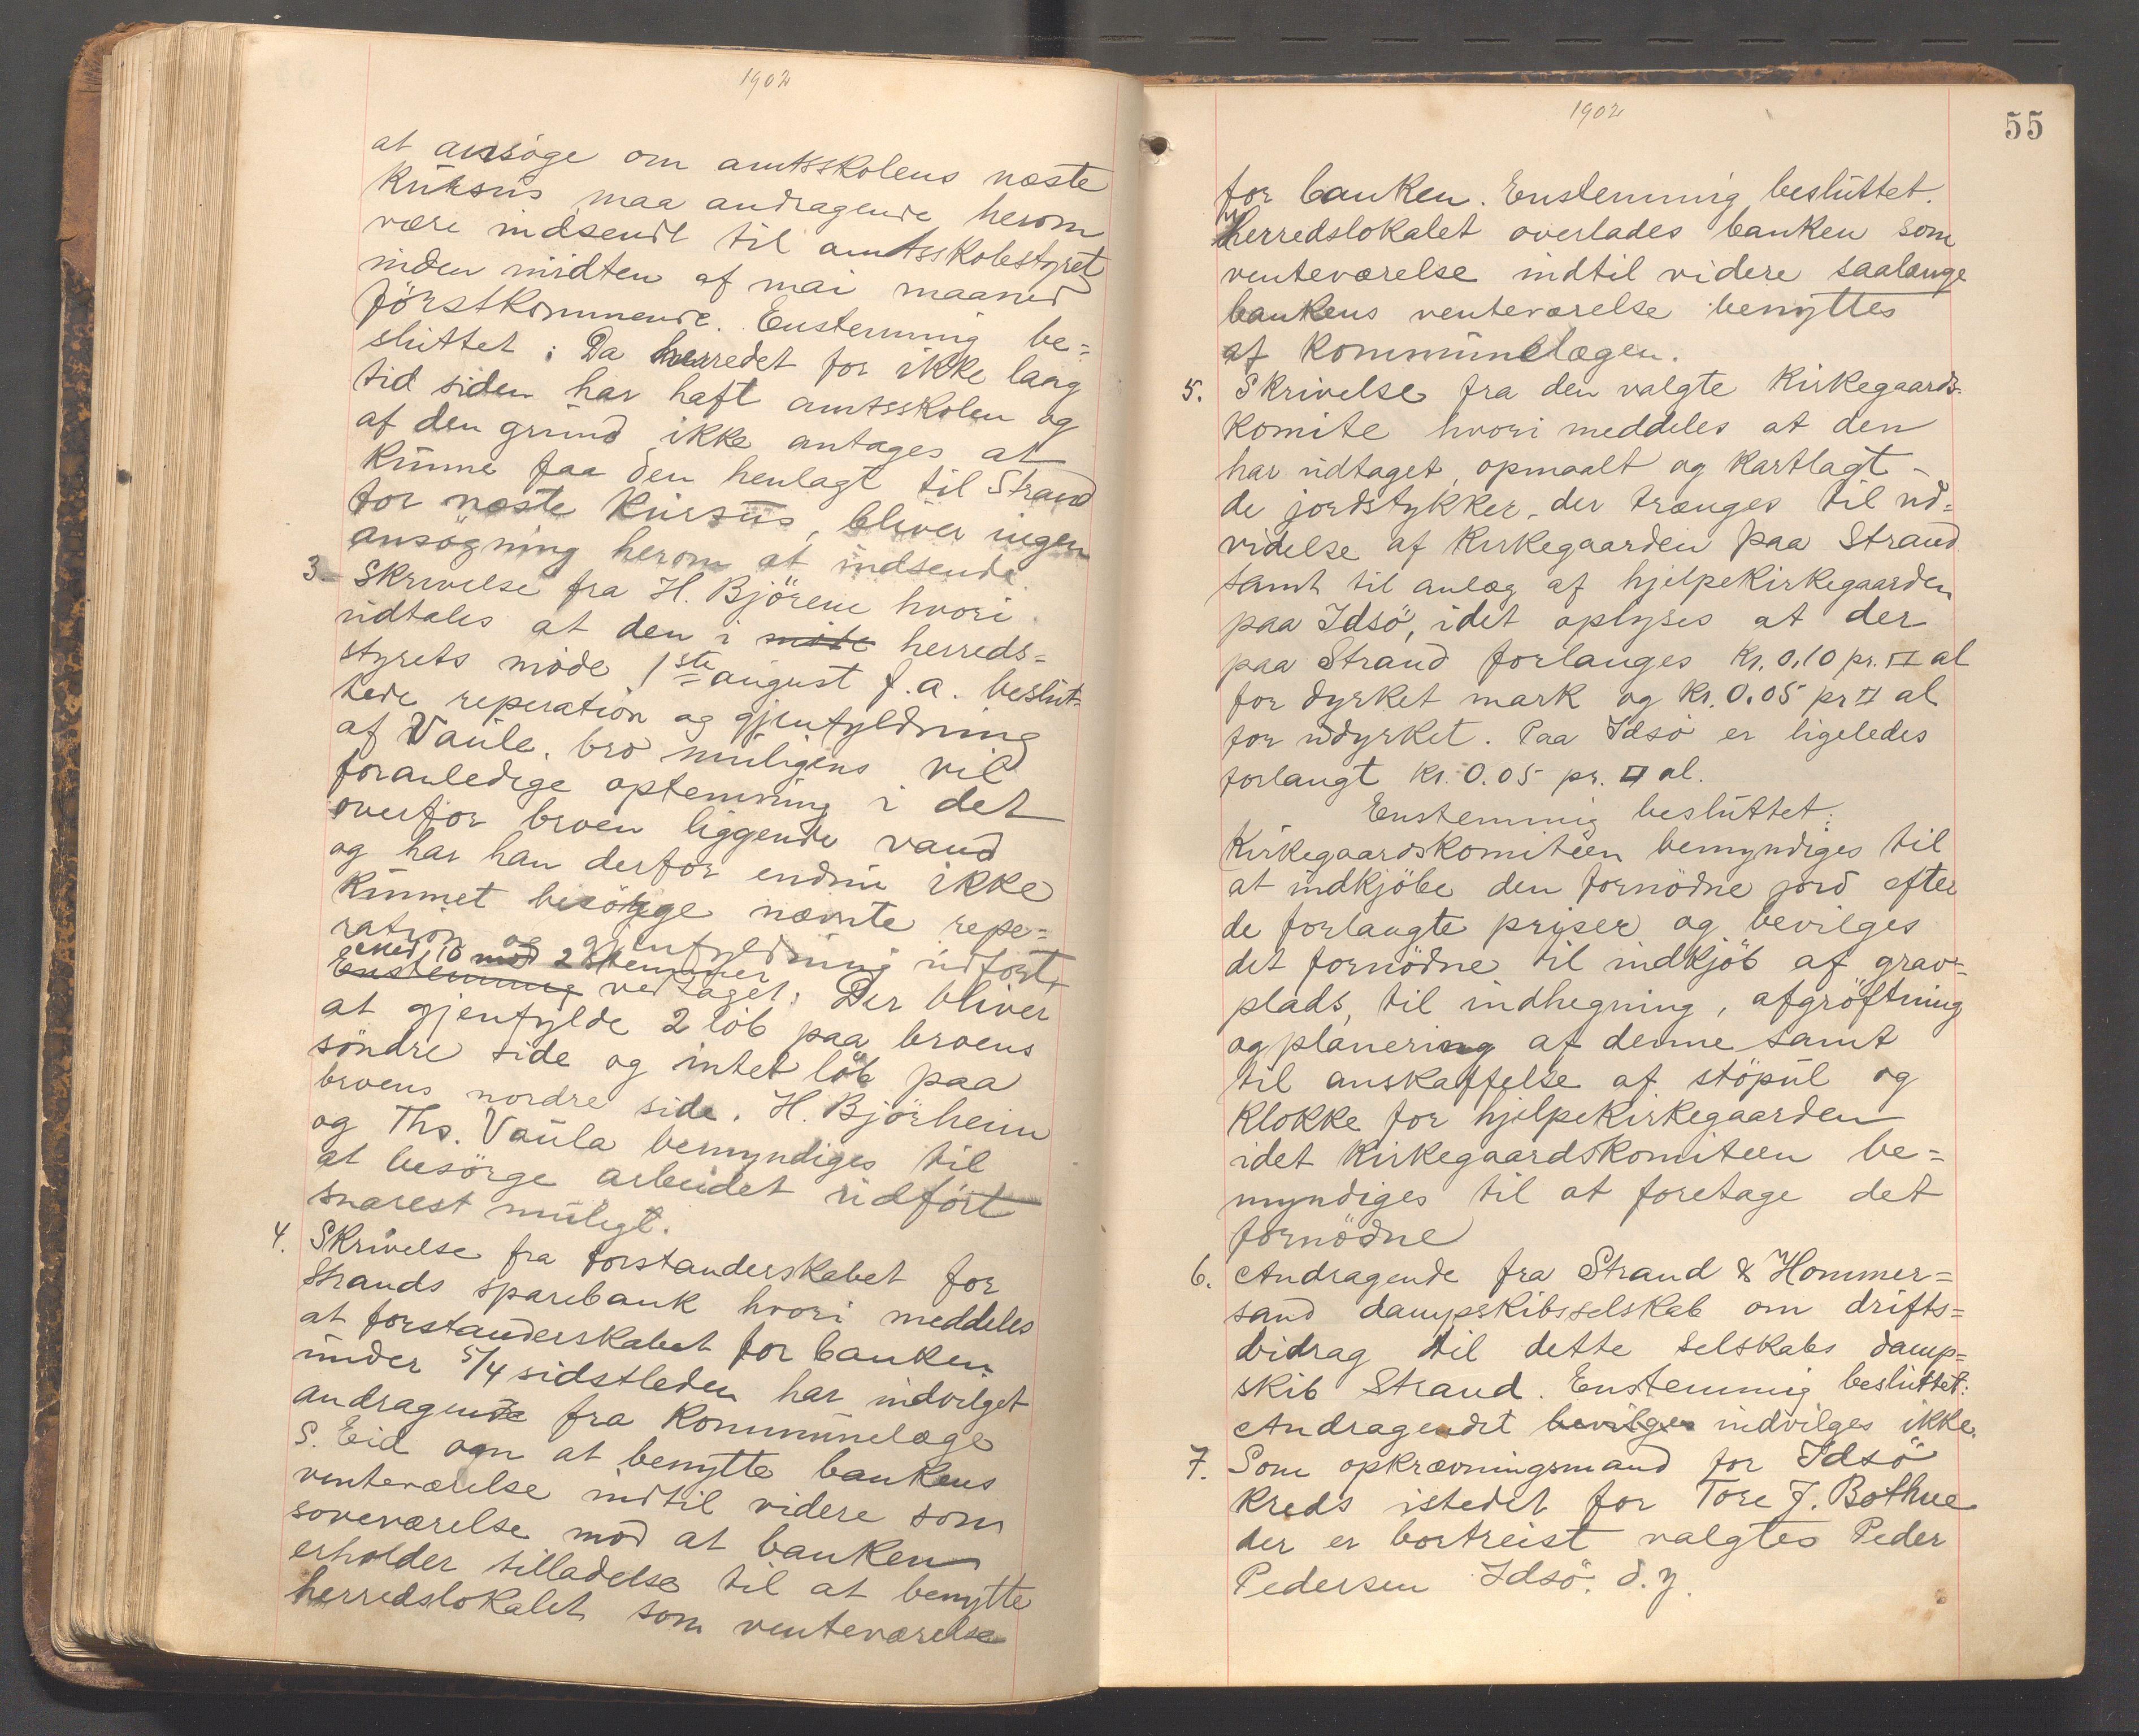 1902
at ansøge om amtsskolens næste
Kursus maa andragende herom
være indsendt til amtsskolestyret
inden midten af mai maaned
førstkommende. Enstemmig be=
sluttet: Da herredet for ikke lang
tid siden har haft amtsskolen og
af den grund ikke antages at
kunne faa den henlagt til Strand
for næste Kursus, bliver ingen
ansøgning herom at indsende.
3. Skrivelse fra H. Bjørene hvori
udtales at den i møte herreds=
styrets møde 1ste august f.a. beslut=
tede reperation og gjenfyldning
af Vaule bro muligens vil
foranledige optemning i det
ovenfor broen liggende vand
og har han derfor endnu ikke
kunnet besørge nævnte repe=
ration og gjenfyldning udført.
med 10 mod 2 stemmer
Enstemmig vedtaget: Der bliver
at gjenfylde 2 løb paa broens
søndre side og intet løb paa
broens nordre side. H. Bjørheim
og Ths. Vaula bemyndiges til
at besørge arbeidet udført
snarest muligt.
4. Skrivelse fra forstanderskabet for
Strands sparebank hvori meddeles
at forstanderskabet for banken
under 5/4 sidstleden har indvilget
andragende fra Kommunelæge
S. Eid om at benytte bankens
venteværelse indtil videre som
soveværelse mod at banken
erholder tilladelse til at benytte
herredslokalet som venteværelse
1902
55
for banken. Enstemmig besluttet.
Herredslokalet overlades banken som
venteværelse indtil videre saalænge
bankens venteværelse benyttes
af Kommunelægen.
5. Skrivelse fra den valgte Kirkegaards-
komite hvori meddeles at den
har udtaget, opmaalt og kartlagt -
de jordstykker, der trænges til ud=
videlse af Kirkegaarden paa Strand
samt til anlæg af hjelpekirkegaarden
paa Idsø, idet oplyses at der
paa Strand forlanges Kr. 0,10 pr. □ al
for dyrket mark og Kr. 0.05 pr □ al
for udyrket. Paa Idsø er ligeledes
forlangt Kr. 0.05 pr. □ al.
Enstemmig besluttet:
Kirkegaardskomiteen bemyndiges til
at indkjøbe den fornødne jord efter
de forlangte priser og bevilges
det fornødne til indkjøb af grav=
plads, til indhegning, afgrøftning
og planering af denne samt
til anskaffelse af støpul og
Klokke for hjelpekirkegaarden
idet Kirkegaardskomiteen be=
myndiges til at foretage det
fornødne
6. Andragende fra Strand & Hommer=
sand dampskibsselskab om drifts=
bidrag til dette selskabs damp=
skib Strand. Enstemmig besluttet:
Andragendet bevilges indvilges ikke.
7. Som opkrævningsmand for Idsø
Kreds istedet for Tore J. Bothne
der er bortreist valgtes Peder
Pedersen Idsø. d.y.